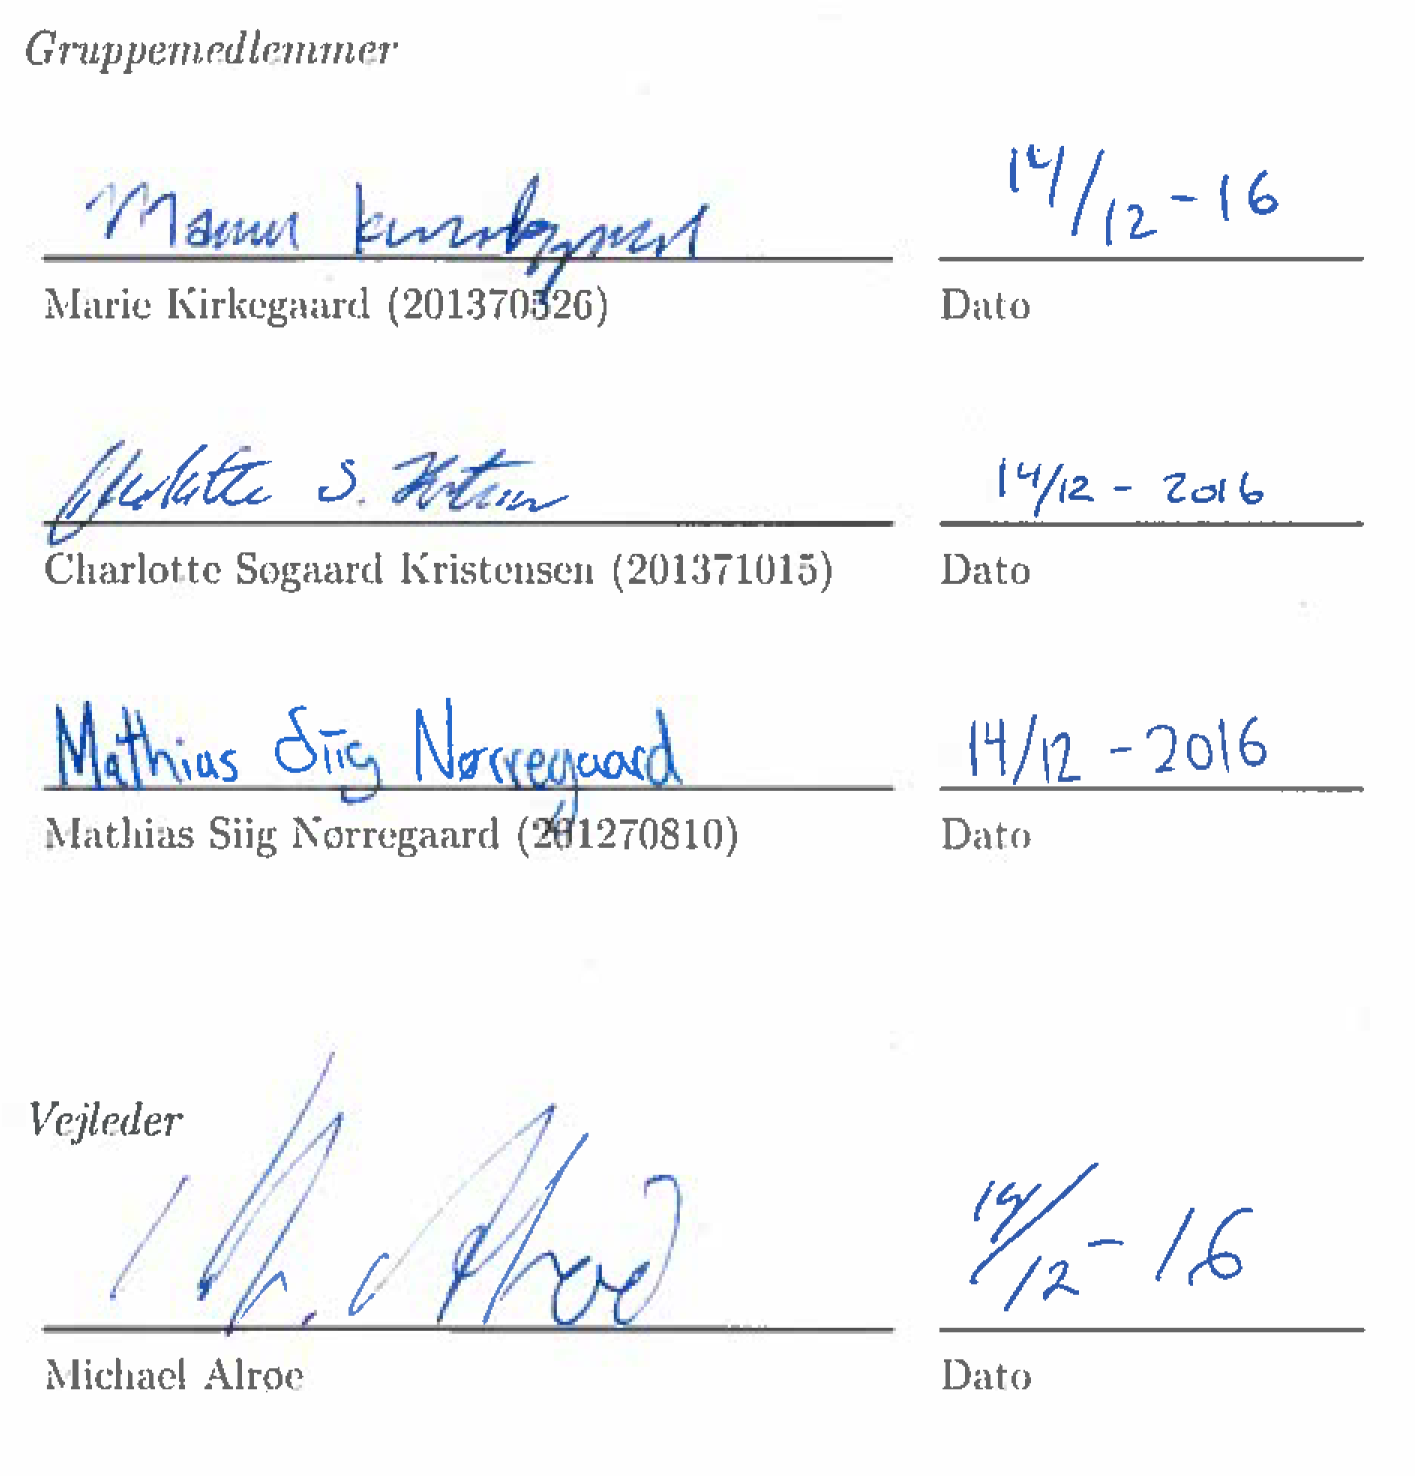 Gruppemedlemmer
14/12 - 16
Marie Kirkegaard (201370526) Dato
Charlotte S. Kristensen 14/12 - 2016
Charlotte Søgaard Kristensen (201371015) Dato
Mathias Siig Nørregaard 14/12 - 2016
Mathias Siig Nørregaard (201270810) Dato
Vejleder
14/12 - 16
Michael Alrøe Dato